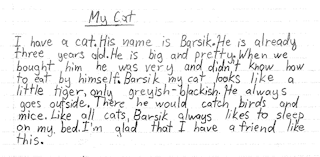 My Cat
I have a cat. His name is Barsik. He is already
three years old. He is big and pretty. When we
bought him he was very and didn't know how
to eat by himself. Barsik my cat looks like a
little tiger, only greyish-blackish. He always
goes outside. There he would catch birds and
mice. Like all cats, Barsik always likes to sleep
on my bed. I'm glad that I have a friend like
this.